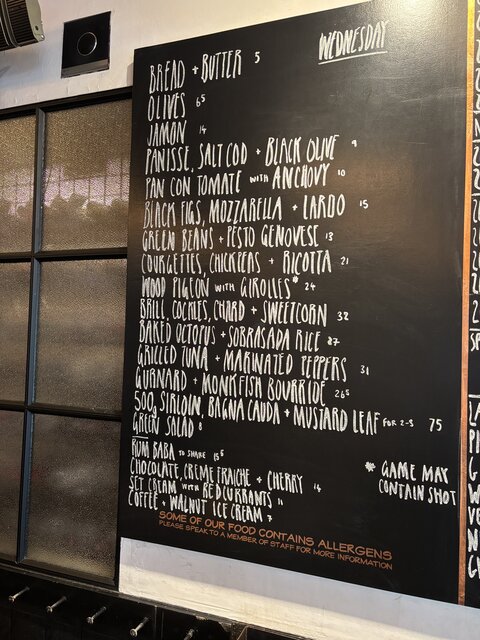 WEDNESDAY
BREAD + BUTTER 5
OLIVES 65
JAMON 14
PANISSE, SALT COD + BLACK OLIVE 9
PAN CON TOMATE WITH ANCHOVY 10
BLACK FIGS, MOZZARELLA + LARDO 15
GREEN BEANS + PESTO GENOVESE 13
COURGETTES, CHICKPEAS + RICOTTA 21
WOOD PIGEON WITH GIROLLES* 24
BRILL, COCKLES, CHARD + SWEETCORN 32
BAKED OCTOPUS + SOBRASADA RICE 27
GRILLED TUNA + MARINATED PEPPERS 31
GURNARD + MONKFISH BOURRIDE 265
500g SIRLOIN, BAGNA CAUDA + MUSTARD LEAF FOR 2-3 75
GREEN SALAD 8
RUM BABA TO SHARE 155
CHOCOLATE, CREME FRAICHE + CHERRY 14
SET CREAM WITH REDCURRANTS 11
COFFEE + WALNUT ICE CREAM 7
* GAME MAY
CONTAIN SHOT
SOME OF OUR FOOD CONTAINS ALLERGENS
PLEASE SPEAK TO A MEMBER OF STAFF FOR MORE INFORMATION